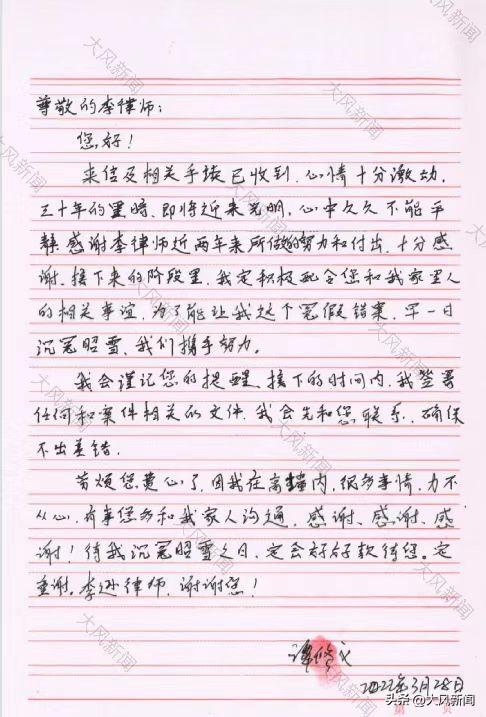 尊敬的李律师:
您好!
来信及相关手续已收到,心情十分激动,
三十年的黑暗,即将迎来光明,心中久久不能平
静,感谢李律师近两年来所做的努力和付出,十分感
谢,接下来的阶段里,我定积极配合您和我家里人
的相关事谊,为了能让我这个冤假错案,早一日
沉冤昭雪,我们携手努力。
我会谨记您的提醒,接下的时间内,我签署
任何和案件相关的文件,我会先和您联系,确保
不出差错。
劳烦您费心了,因我在高墙内,很多事情,力不
从心,有事您多和我家人沟通,感谢、感谢、感
谢!待我沉冤昭雪之日,定会好好款待您。定
重谢。李逊律师,谢谢您!
谭修义
2022年3月28日
第 页
头条 @大风新闻
大风新闻